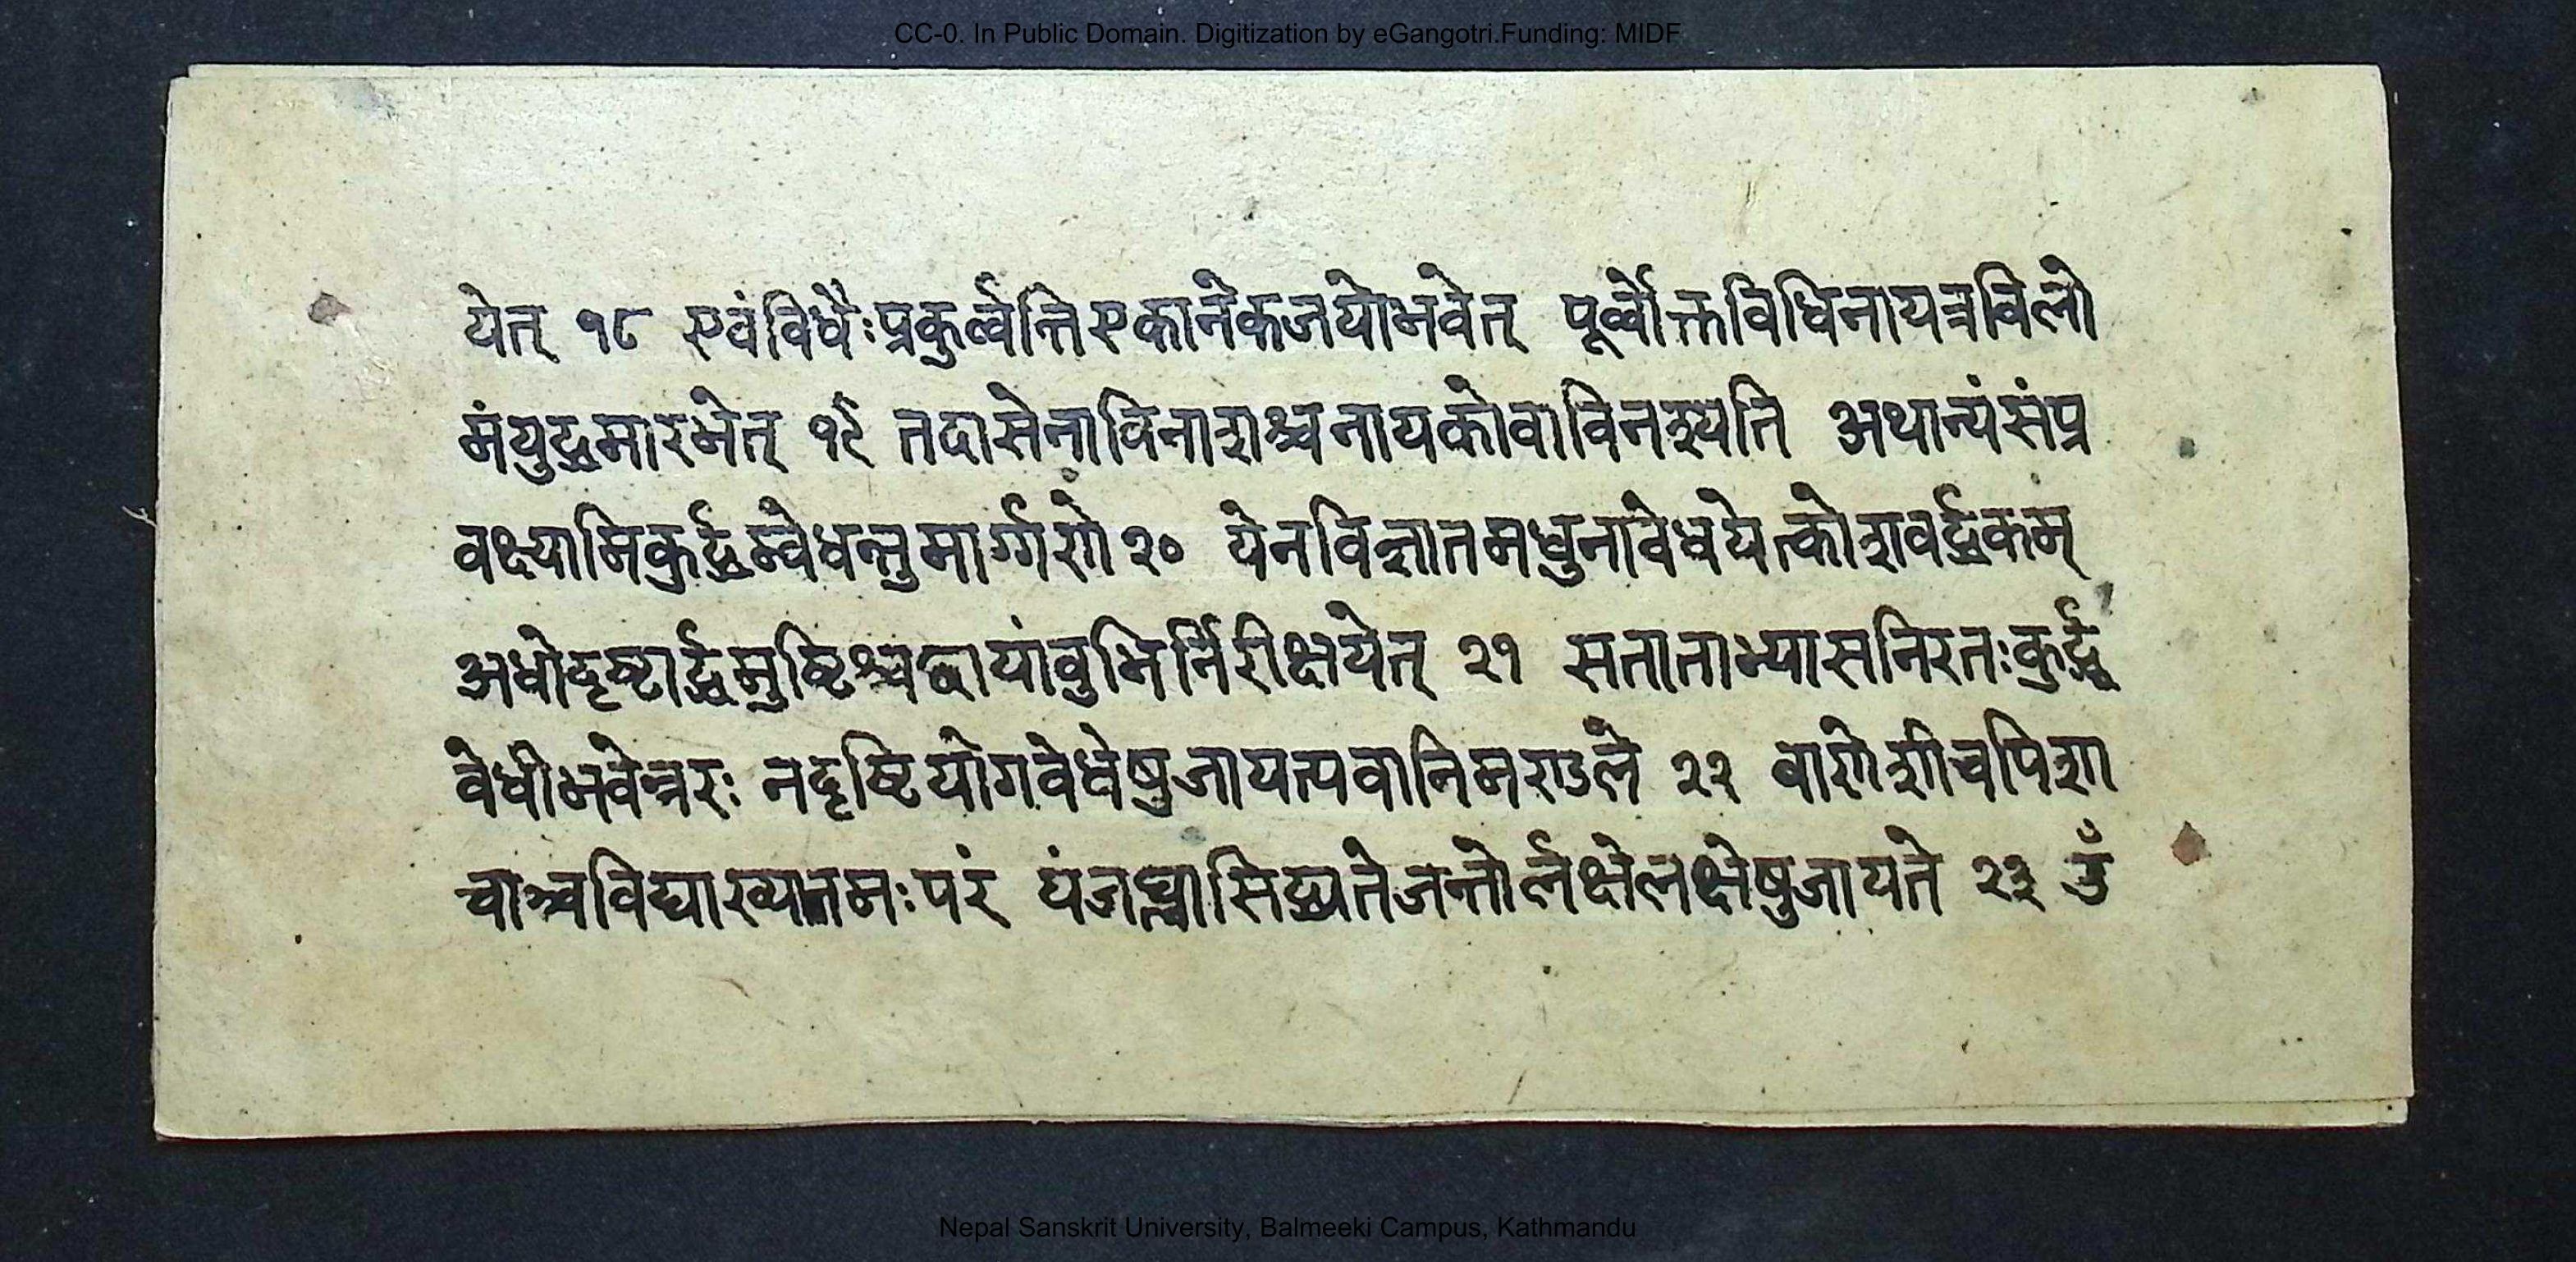 CC-0. In Public Domain. Digitization by eGangotri.Funding: MIDF
येत् १८ एवंविधैःप्रकुर्व्वन्तिएकानेकजयोभवेत् पूर्व्वोक्तविधिनायत्रविलो
मंयुद्धमारभेत् १९ तदासेनाविनाशश्चनायकोवाविनश्यति अथान्यंसंप्र
वक्ष्यामिकुर्द्धम्वेधन्तुमार्ग्गणे २० येनविज्ञातमधुनावेधयेत्कोशवर्द्धकम्
अधोदृष्टार्द्धमुष्टिश्चछायांवुभिर्निरीक्षयेत् २१ सताताभ्यासनिरतःकुर्द्ध
वेधीभवेन्नरः नदृष्टियोगवेधेषुजायत्पवानिमण्डले २२ वाणेशीचपिशा
चाश्चविद्याख्यातमःपरं यंजप्त्वासिद्ध्यतेजन्तोर्लक्षेलक्षेषुजायते २३ उँ
Nepal Sanskrit University, Balmeeki Campus, Kathmandu